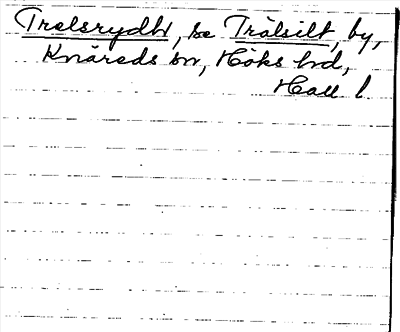 Trelsrydht, se Trälsilt, by,
Knäreds sn, Höks hrd,
Hall l